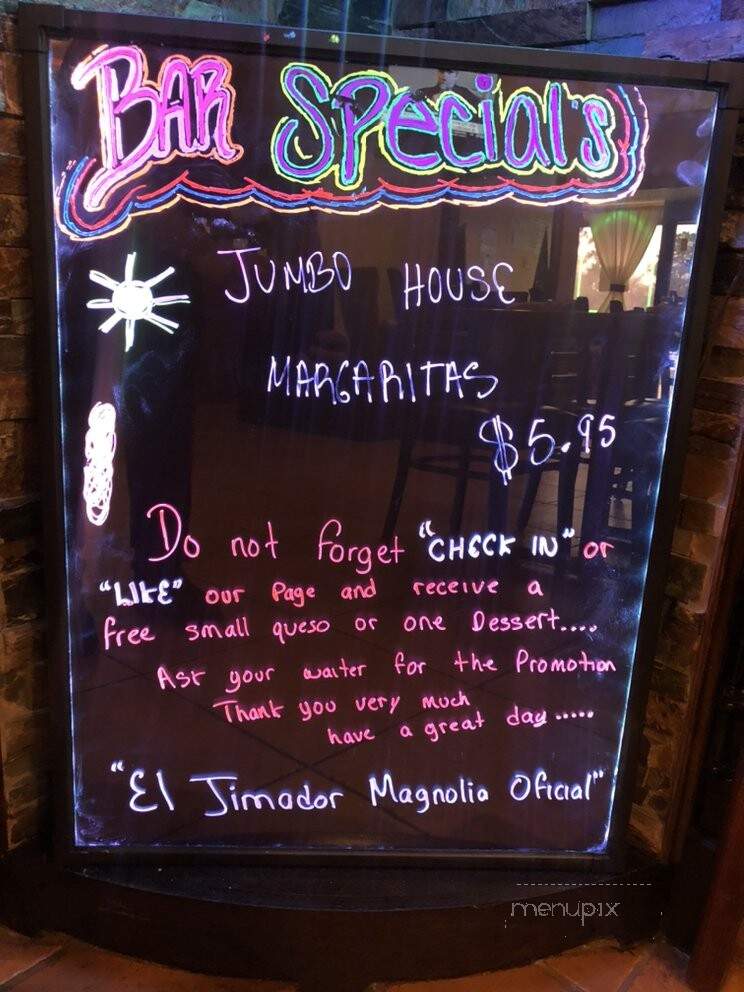 BAR SPecial's
JUMBO HOUSE
MARGARITAS
$5.95
Do not forget "CHECK IN" or
"LIKE" our Page and receive a
free small queso or one Dessert....
Ask your waiter for the Promotion
Thank you very much
have a great day .....
"El Jimador Magnolia Oficial"
menupix